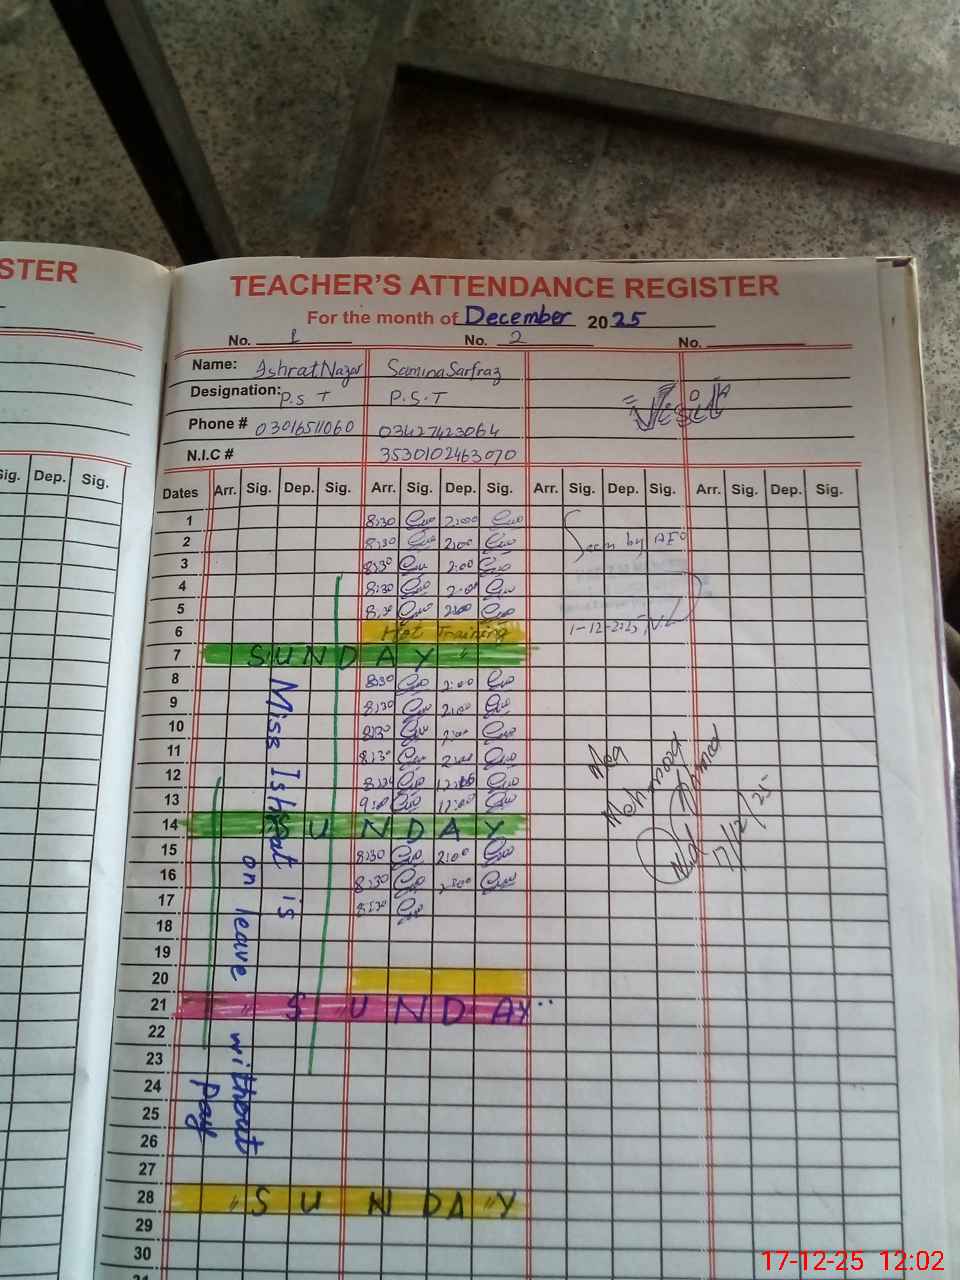 STER
TEACHER'S ATTENDANCE REGISTER
For the month of December 2025
No. 1 No. 2 No.
Name: Ishrat Nazar Samina Sarfraz
Designation: P.S T P.S.T
Phone # 03016511060 03427423064
N.I.C # 3530102463070
Visit
Sig. Dep. Sig.
Dates Arr. Sig. Dep. Sig. Arr. Sig. Dep. Sig. Arr. Sig. Dep. Sig. Arr. Sig. Dep. Sig.
1 8:30 2:00
2 8:30 2:00 Seen by AEO
3 8:30 2:00
4 8:30 2:00
5 8:30 2:00
6 Hot Training 1-12-2025
7 SUNDAY "
8 8:30 2:00
9 8:30 2:00
10 8:30 2:00
11 8:30 2:00
12 8:30 12:00
13 9:00 12:00
14 SUNDAY
15 8:30 2:00
16 8:30 2:00
17 8:30
18
19
20
21 " SUNDAY "
22
23
24
25
26
27
28 " SUNDAY "
29
30
31
Miss Ishrat is
on leave without
Pay
Mea
Mehmood Ahmad
17/12/25
17-12-25 12:02